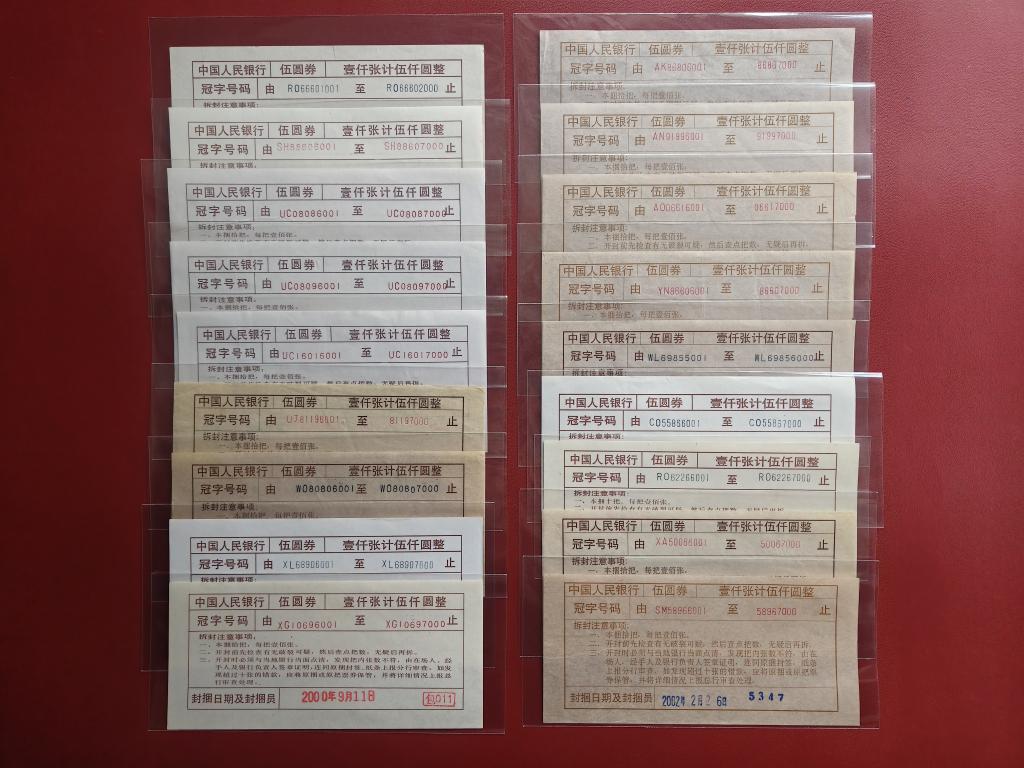 中国人民银行 伍圆券 壹仟张计伍仟圆整
冠字号码 由 RO66601001 至 RO66602000 止
拆封注意事项:
中国人民银行 伍圆券 壹仟张计伍仟圆整
冠字号码 由 至 SH88607000 止
中国人民银行 伍圆券 壹仟张计伍仟圆整
冠字号码 由 UC08086001 至 UC08087000 止
拆封注意事项:
一、本捆拾把,每把壹佰张。
中国人民银行 伍圆券 壹仟张计伍仟圆整
冠字号码 由 UC08096001 至 UC08097000 止
拆封注意事项:
一、本捆拾把,每把壹佰张。
中国人民银行 伍圆券 壹仟张计伍仟圆整
冠字号码 由 UC16016001 至 UC16017000 止
拆封注意事项:
一、本捆拾把,每把壹佰张。
中国人民银行 伍圆券 壹仟张计伍仟圆整
冠字号码 由 至 81197000 止
拆封注意事项:
一、本捆拾把,每把壹佰张。
中国人民银行 伍圆券 壹仟张计伍仟圆整
冠字号码 由 WO80806001 至 WO80807000 止
拆封注意事项:
一、本捆拾把,每把壹佰张。
中国人民银行 伍圆券 壹仟张计伍仟圆整
冠字号码 由 XL68906001 至 XL68907000 止
拆封注意事项:
中国人民银行 伍圆券 壹仟张计伍仟圆整
冠字号码 由 XG10696001 至 XG10697000 止
拆封注意事项:
一、本捆拾把,每把壹佰张。
二、开封前先检查有无破裂可疑,然后查点把数,无疑后再拆。
三、开封时必须与当地银行当面点清,发现把内张数不符,由在场人、经
手人及银行负责人签章证明,连同原捆封签、纸条上报分行审查。如发
现超过十张的错款,应将原捆或原把票券保管,并将详细情况上报总
行审查处理。
封捆日期及封捆员 2000年9月11日 包011
中国人民银行 伍圆券 壹仟张计伍仟圆整
冠字号码 由 AK86806001 至 86807000 止
拆封注意事项:
一、本捆拾把,每把壹佰张。
中国人民银行 伍圆券 壹仟张计伍仟圆整
冠字号码 由 AN91996001 至 91997000 止
拆封注意事项:
一、本捆拾把,每把壹佰张。
中国人民银行 伍圆券 壹仟张计伍仟圆整
冠字号码 由 AO06616001 至 06617000 止
拆封注意事项:
一、本捆拾把,每把壹佰张。
二、开封前先检查有无破裂可疑,然后查点把数,无疑后再拆。
中国人民银行 伍圆券 壹仟张计伍仟圆整
冠字号码 由 YN86606001 至 86607000 止
拆封注意事项:
一、本捆拾把,每把壹佰张。
中国人民银行 伍圆券 壹仟张计伍仟圆整
冠字号码 由 WL69855001 至 WL69856000 止
拆封注意事项:
中国人民银行 伍圆券 壹仟张计伍仟圆整
冠字号码 由 CO55866001 至 CO55867000 止
拆封注意事项:
中国人民银行 伍圆券 壹仟张计伍仟圆整
冠字号码 由 RO62266001 至 RO62267000 止
拆封注意事项:
一、本捆十把,每把壹佰张。
中国人民银行 伍圆券 壹仟张计伍仟圆整
冠字号码 由 XA50066001 至 50067000 止
拆封注意事项:
一、本捆拾把,每把壹佰张。
中国人民银行 伍圆券 壹仟张计伍仟圆整
冠字号码 由 SM58966001 至 58967000 止
拆封注意事项:
一、本捆拾把,每把壹佰张。
二、开封前先检查有无破裂可疑,然后查点把数,无疑后再拆。
三、开封时必须与当地银行当面点清,发现把内张数不符,由在
场人、经手人及银行负责人签章证明,连同原捆封签、纸条
上报分行审查。如发现超过十张的错款,应将原捆或原把票
券保管,并将详细情况上报总行审查处理。
封捆日期及封捆员 2002年2月26日 5347